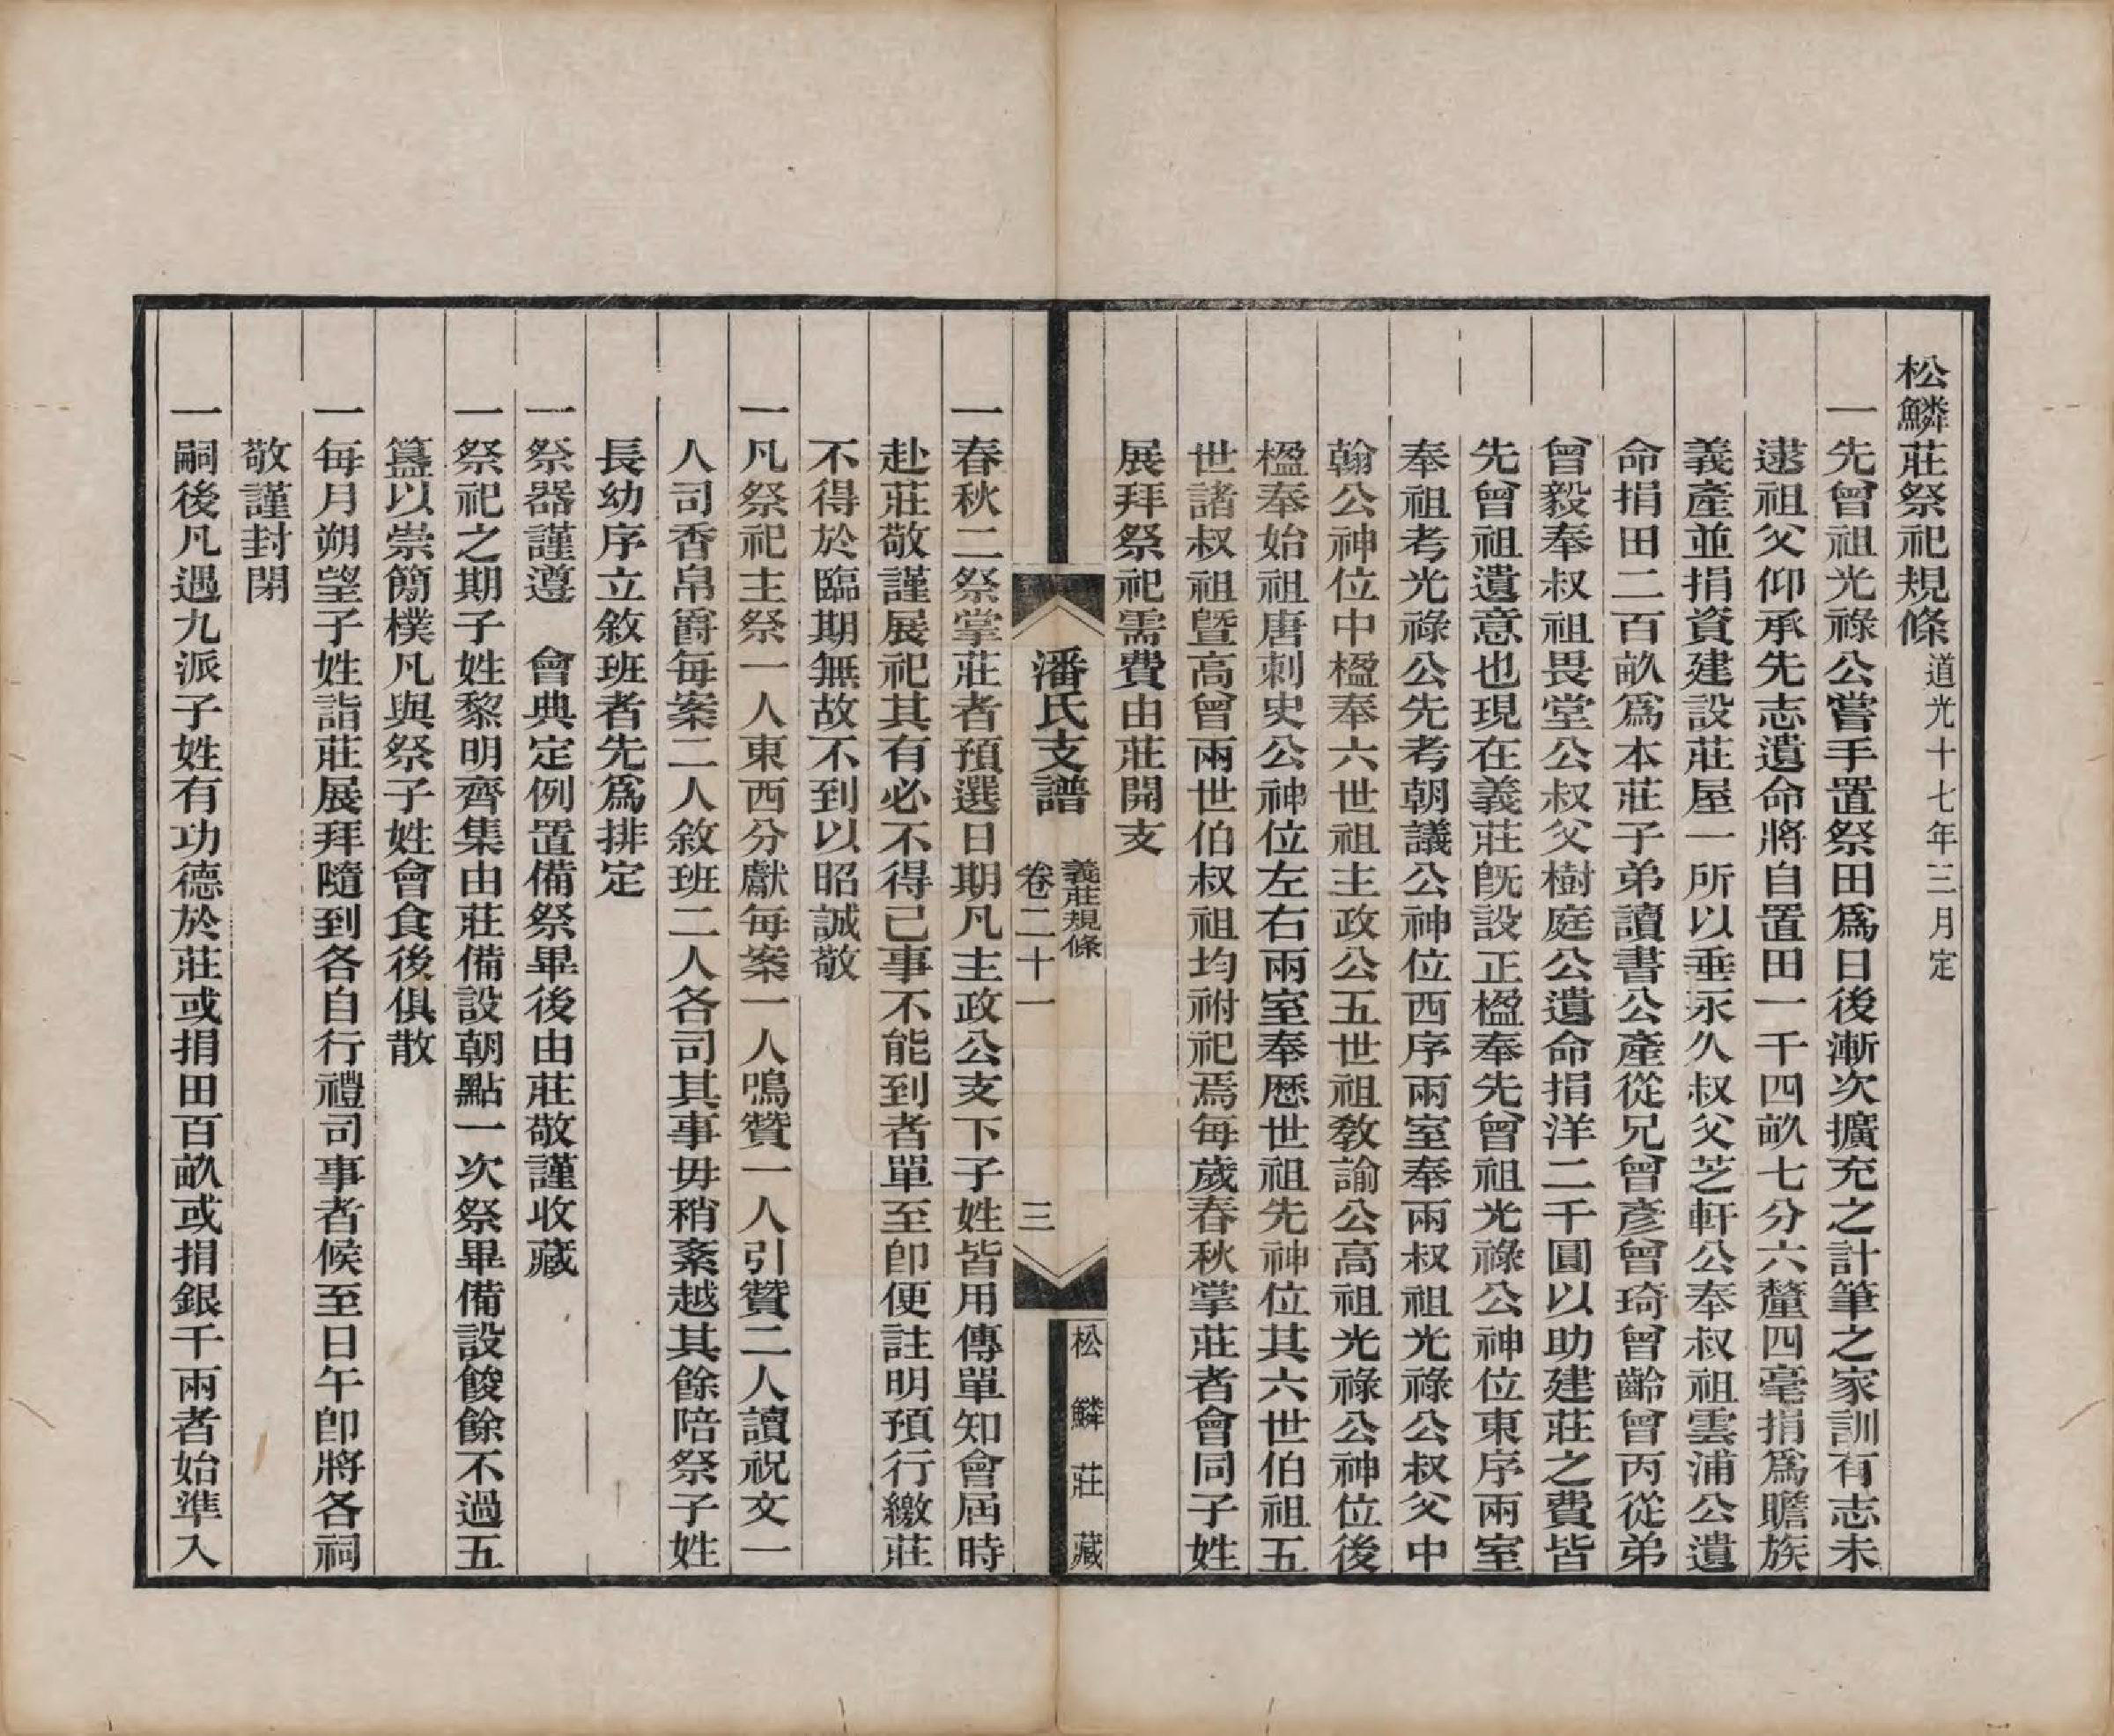 松鱗莊祭祀規條道光十七年三月定
一先曾祖光祿公嘗手置祭田爲日後漸次擴充之計筆之家訓有志未
逮祖父仰承先志遺命將自置田一千四畝七分六釐四毫捐爲贍族
義產並捐資建設莊屋一所以垂永久叔父芝軒公奉叔祖雲浦公遺
命捐田二百畝爲本莊子弟讀書公產從兄曾彥曾琦曾齡曾丙從弟
曾毅奉叔祖畏堂公叔父樹庭公遺命捐洋二千圓以助建莊之費皆
先曾祖遺意也現在義莊旣設正楹奉先曾祖光祿公神位東序兩室
奉祖考光祿公先考朝議公神位西序兩室奉兩叔祖光祿公叔父中
翰公神位中楹奉六世祖主政公五世祖敎諭公高祖光祿公神位後
楹奉始祖唐刺史公神位左右兩室奉歷世祖先神位其六世伯祖五
世諸叔祖曁高曾兩世伯叔祖均祔祀焉每歲春秋掌莊者會同子姓
展拜祭祀需費由莊開支
潘氏支譜
義莊規條
卷二十一
三
松鱗莊藏
一春秋二祭掌莊者預選日期凡主政公支下子姓皆用傳單知會屆時
赴莊敬謹展祀其有必不得已事不能到者單至卽便註明預行繳莊
不得於臨期無故不到以昭誠敬
一凡祭祀主祭一人東西分獻每案一人鳴贊一人引贊二人讀祝文一
人司香帛爵每案二人敘班二人各司其事毋稍紊越其餘陪祭子姓
長幼序立敘班者先爲排定
一祭器謹遵　會典定例置備祭畢後由莊敬謹收藏
一祭祀之期子姓黎明齊集由莊備設朝點一次祭畢備設餕餘不過五
簋以崇簡樸凡與祭子姓會食後俱散
一每月朔望子姓詣莊展拜隨到各自行禮司事者候至日午卽將各祠
敬謹封閉
一嗣後凡遇九派子姓有功德於莊或捐田百畝或捐銀千兩者始準入